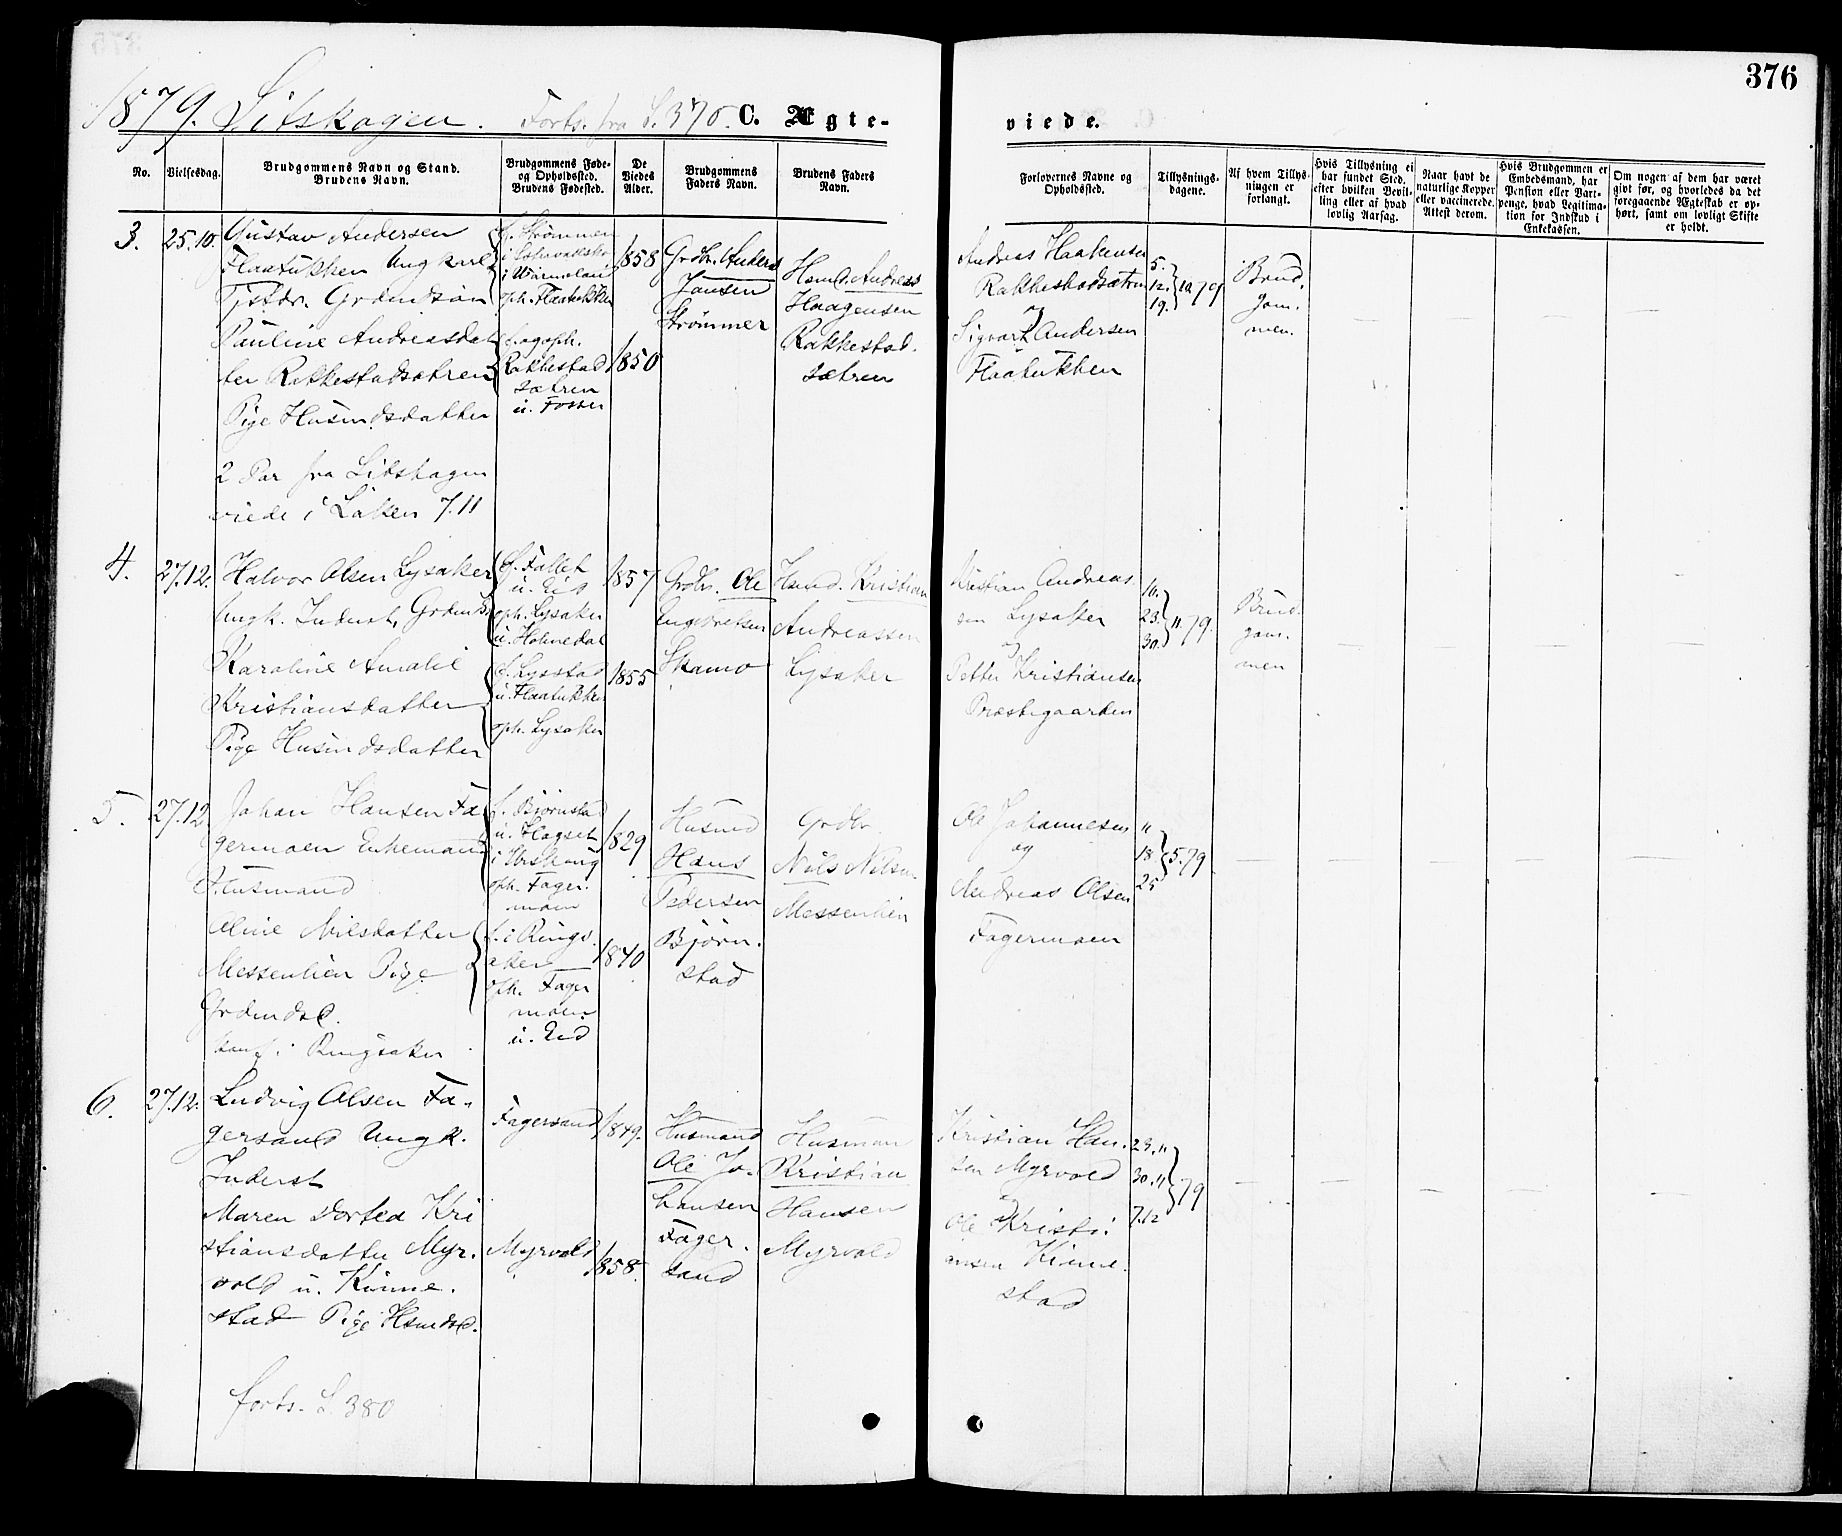 376
1879. Sitskogen. Forts. fra S. 370. C. Ægte-
viede.
No.
Vielsesdag.
Brudgommens Navn og Stand.
Brudens Navn.
Brudgommens Føde-
og Opholdssted.
Brudens Fødested.
De
Viedes
Alder.
Brudgommens
Faders Navn.
Brudens Faders
Navn.
Forlovernes Navne og
Opholdssted.
Tillysnings-
dagene.
Af hvem Tillys-
ningen er
forlangt.
Hvis Tillysning ei
har fundet Sted,
efter hvilken Bevil-
ling eller af hvad
lovlig Aarsag.
Naar havt de
naturlige Kopper
eller vaccinerede.
Attest derom.
Hvis Brudgommen er
Embedsmand, har
Pension eller Vart-
penge, hvad Legitima-
tion for Indskud i
Enkekassen.
Om nogen af dem har været
givt før, og hvorledes da det
foregaaende Ægteskab er op-
hørt, samt om lovligt Skifte
er holdt.
3.
25.10.
Gustav Andersen
Flaatukken Ungkarl
Tjstdr. Grdmdsøn
Pauline Andreasdat
ter Rakkestadsætren
Pige Husmdsdatter
f. Strømmer
i Wärmeland
oph. Flaatukken
f. og oph.
Rakkestad
sætren
u. Fosser
1858
1850
Grdbr. Anders
Jansen
Strømmer
Hsmd. Andreas
Haagensen
Rakkestad.
sætren
Andreas Haakensen
Rakkestadsætren
og
Sigvart Andersen
Flaatukken
5.
12. 10 79
19.
Brud.
gom.
men.
2 Par fra Sitskogen
viede i Løken 7.11
4.
27.12.
Halvor Olsen Lysaker
Ungk. Inderst, Grdmds
Karoline Amalie
Kristiansdatter
Pige Husmdsdatter
f. Fallet
u. Eid
oph. Lysaker
u. Holmedal
f. Lysstad
u. Flaatukken
oph. Lysaker
1857
1855
Grdbr. Ole
Engebretsen
Skamo
Hsmd. Kristian
Andreassen
Lysaker
Kristian Andreas.
sen Lysaker
og
Petter Kristiansen
Præstegaarden
16.
23. 11 79.
30.
Brud.
gom.
men
5.
27.12
Johan Hansen Fa
germoen Enkemand
Husmand
Oline Nilsdatter
Messenlien Pige
Grdmdsd.
konf. i Ringsaker
f. Bjørnstad
u. Hogset
i Urskoug
oph. Fager.
moen
f. i Rings.
aker
oph. Fager
moen
u. Eid
1829
1840
Husmd
Hans
Pedersen
Bjørn.
stad
Grdbr.
Nils Nilsen
Messenlien
Ole Johannesen
og
Andreas Olsen
Fagermoen
11
18 5.79.
25
6.
27.12.
Ludvig Olsen Fa-
gersand Ungk.
Inderst
Maren Dortea Kri
stiansdatter Myr.
vold u. Kinne.
stad Pige Hsmdsd.
Fagersand
Myrvold
1849.
1858.
Husmand
Ole Jo.
hansen
Fager.
sand
Husman
Kristian
Hansen
Myrvold
Kristian Han.
sen Myrvold
og
Ole Kristi
ansen Kinne.
stad
23.11
30.11 79
7.12
forts. S. 380